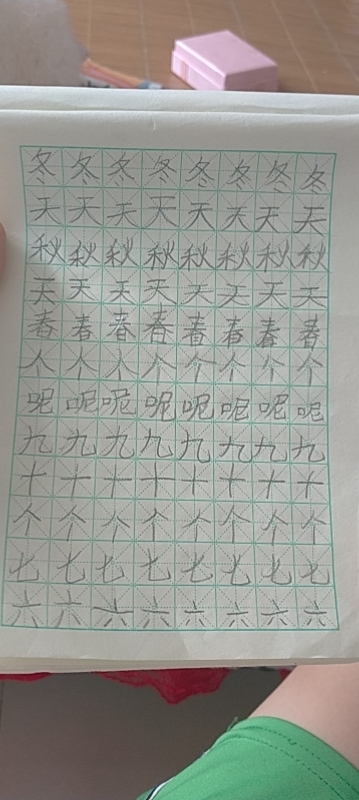 冬冬冬冬冬冬冬冬
天天天天天天天天
秋秋秋秋秋秋秋秋
天天天天天天天天
春春春春春春春春
个个个个个个个个
呢呢呢呢呢呢呢呢
九九九九九九九九
十十十十十十十十
个个个个个个个个
七七七七七七七七
六六六六六六六六